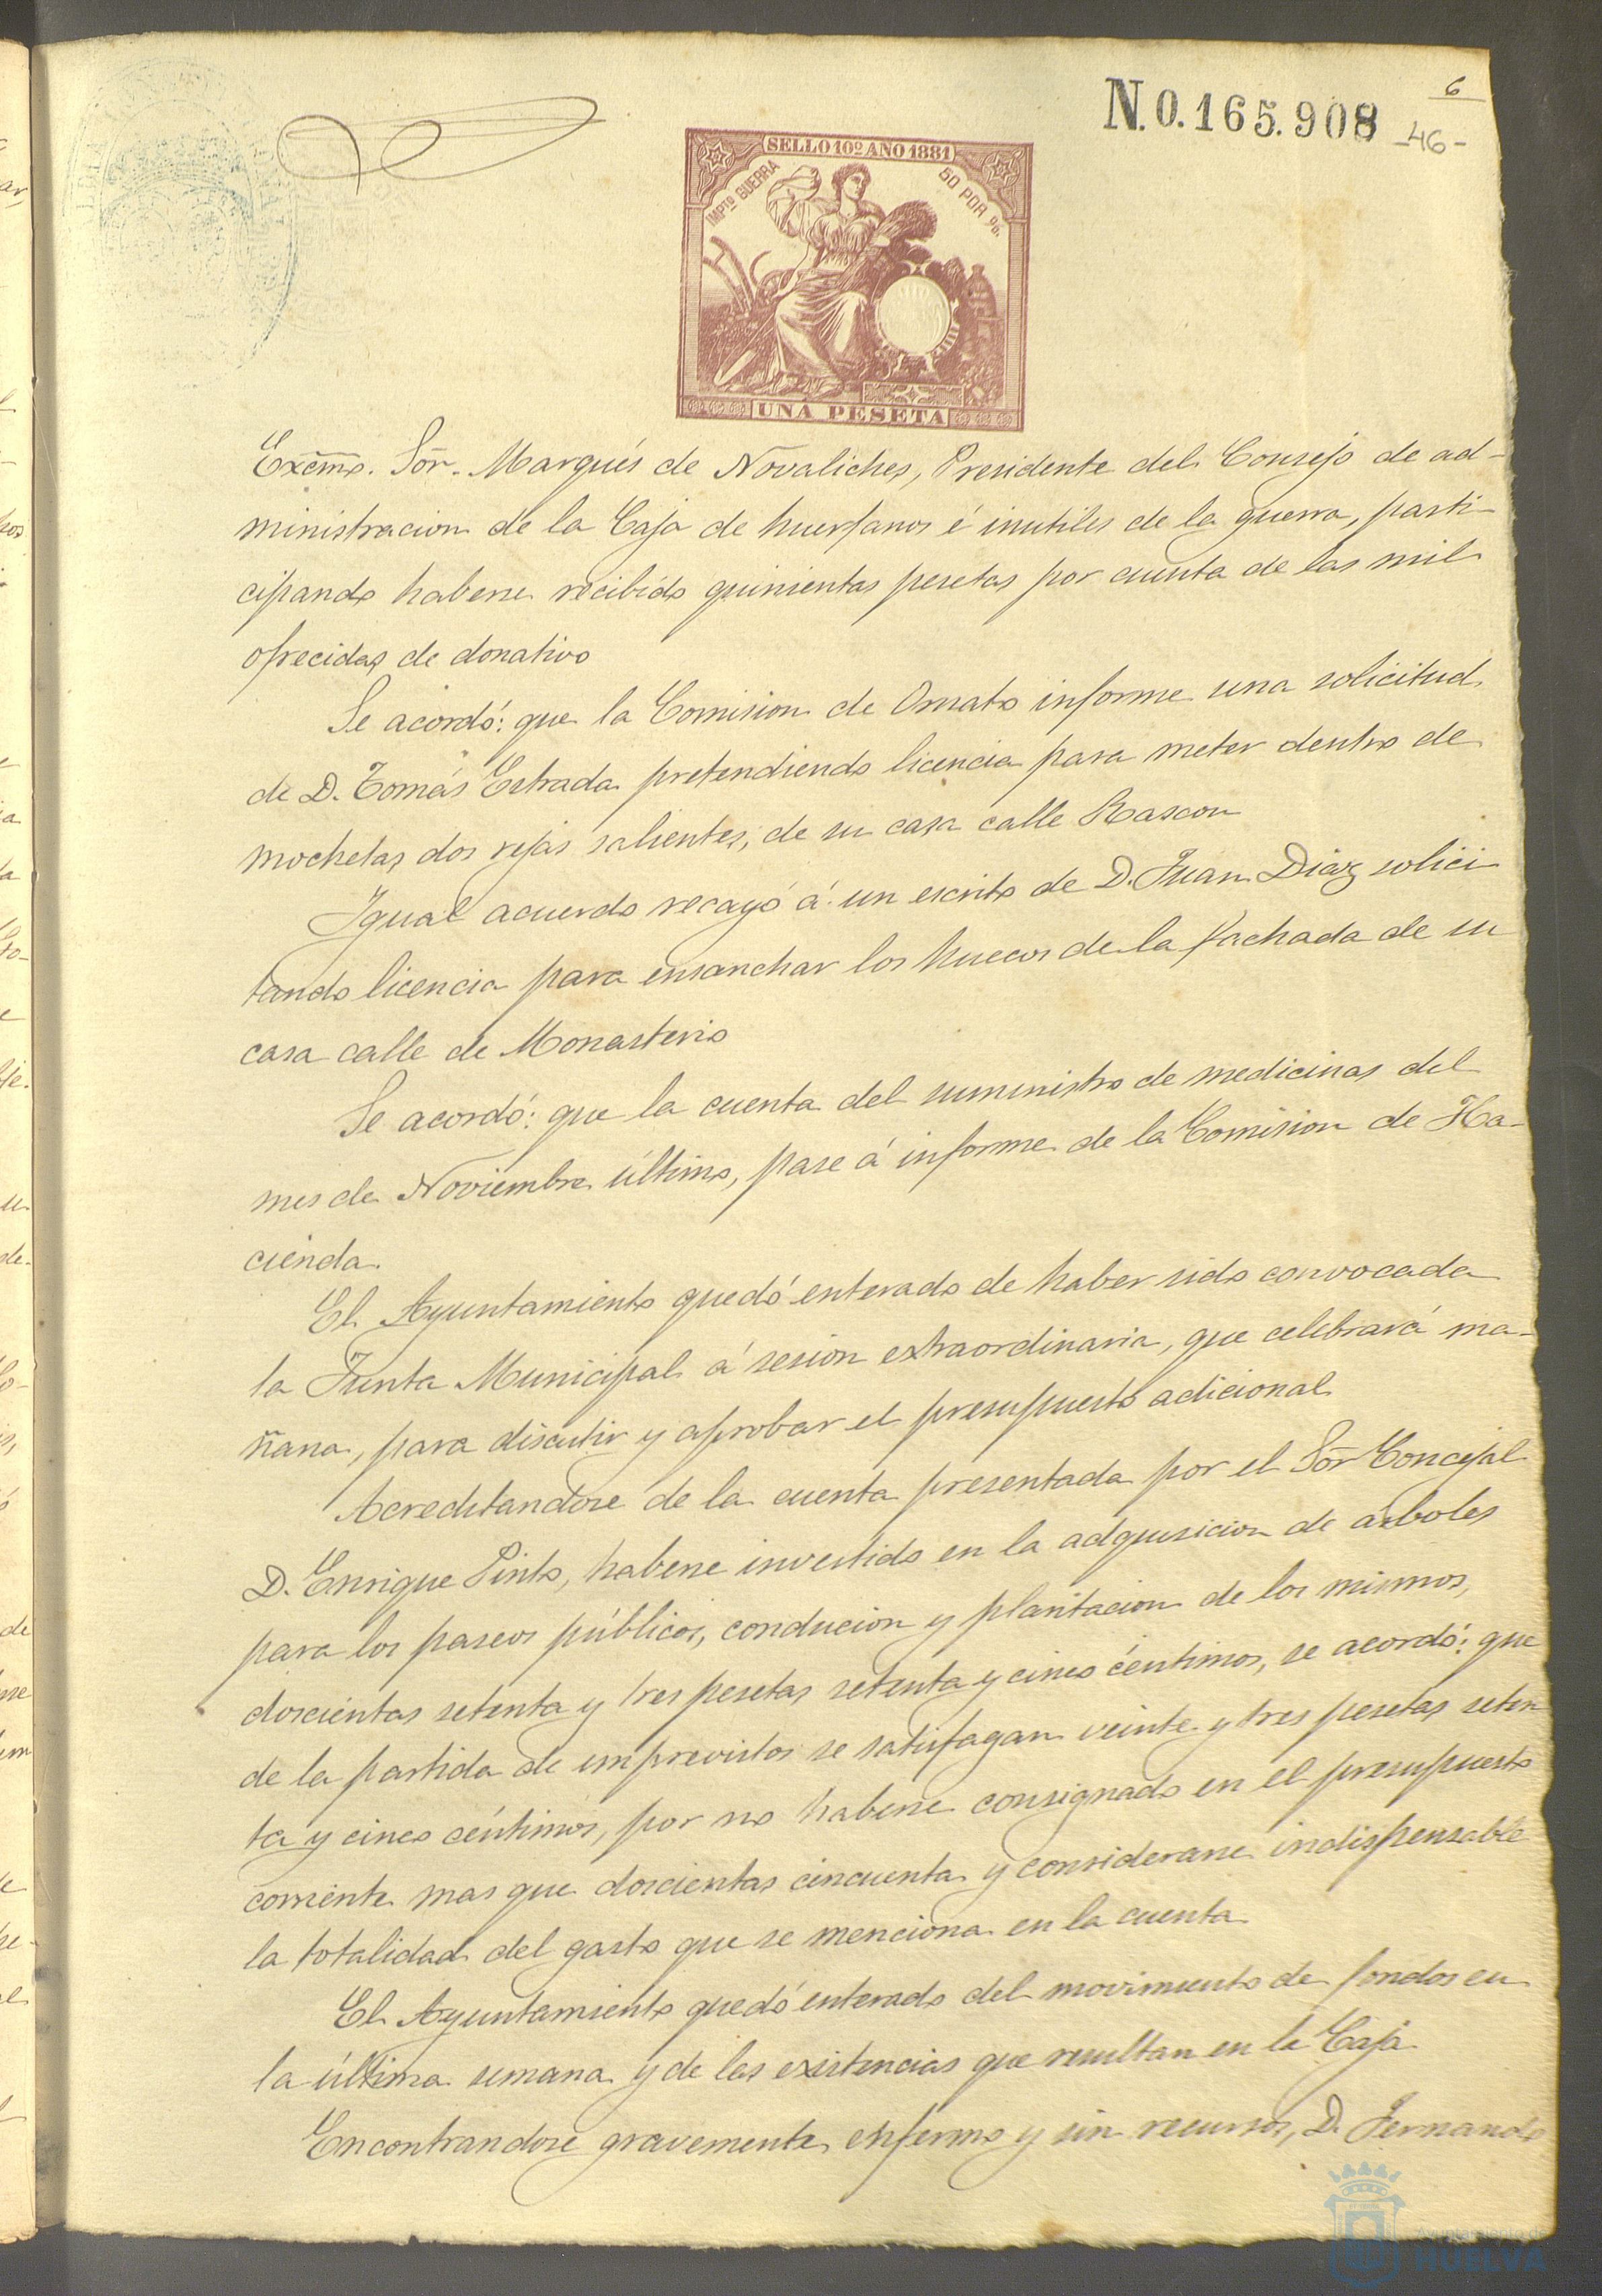 N.0.165.908
6
-46-
SELLO 10º AÑO 1881
IMPTO GUERRA 50 POR %.
UNA PESETA
Excm̃o. Sõr. Marqués de Novaliches, Presidente del Consejo de ad-
ministracion de la Caja de huerfanos é inutiles de la guerra, parti-
cipando haberse recibido quinientas pesetas por cuenta de las mil
ofrecidas de donativo
Se acordó: que la Comision de Ornato informe una solicitud
de D. Tomás Estrada pretendiendo licencia para meter dentro de
mochetas, dos rejas salientes, de su casa calle Rascon
Igual acuerdo recayó á un escrito de D. Juan Diaz solici-
tando licencia para ensanchar los huecos de la fachada de su
casa calle de Monasterio
Se acordó: que la cuenta del suministro de medicinas del
mes de Noviembre último, pase á informe de la Comision de Ha-
cienda.
El Ayuntamiento quedó enterado de haber sido convocada
la Junta Municipal á sesion extraordinaria, que celebrará ma-
ñana, para discutir y aprobar el presupuesto adicional
Acreditandose de la cuenta presentada por el Sõr Concejal
D. Enrique Pinto, haberse invertido en la adquisicion de árboles
para los paseos públicos, conducion y plantacion de los mismos,
doscientas setenta y tres pesetas setenta y cinco céntimos, se acordó: que
de la partida de imprevistos se satisfagan veinte y tres pesetas seten
ta y cinco céntimos, por no haberse consignado en el presupuesto
corriente mas que doscientas cincuenta y considerarse indispensable
la totalidad del gasto que se menciona en la cuenta
El Ayuntamiento quedó enterado del movimiento de fondos en
la última semana y de las existencias que resultan en la Caja
Encontrandose gravemente enfermo y sin recursos, D. Fernando
Ayuntamiento de
HUELVA